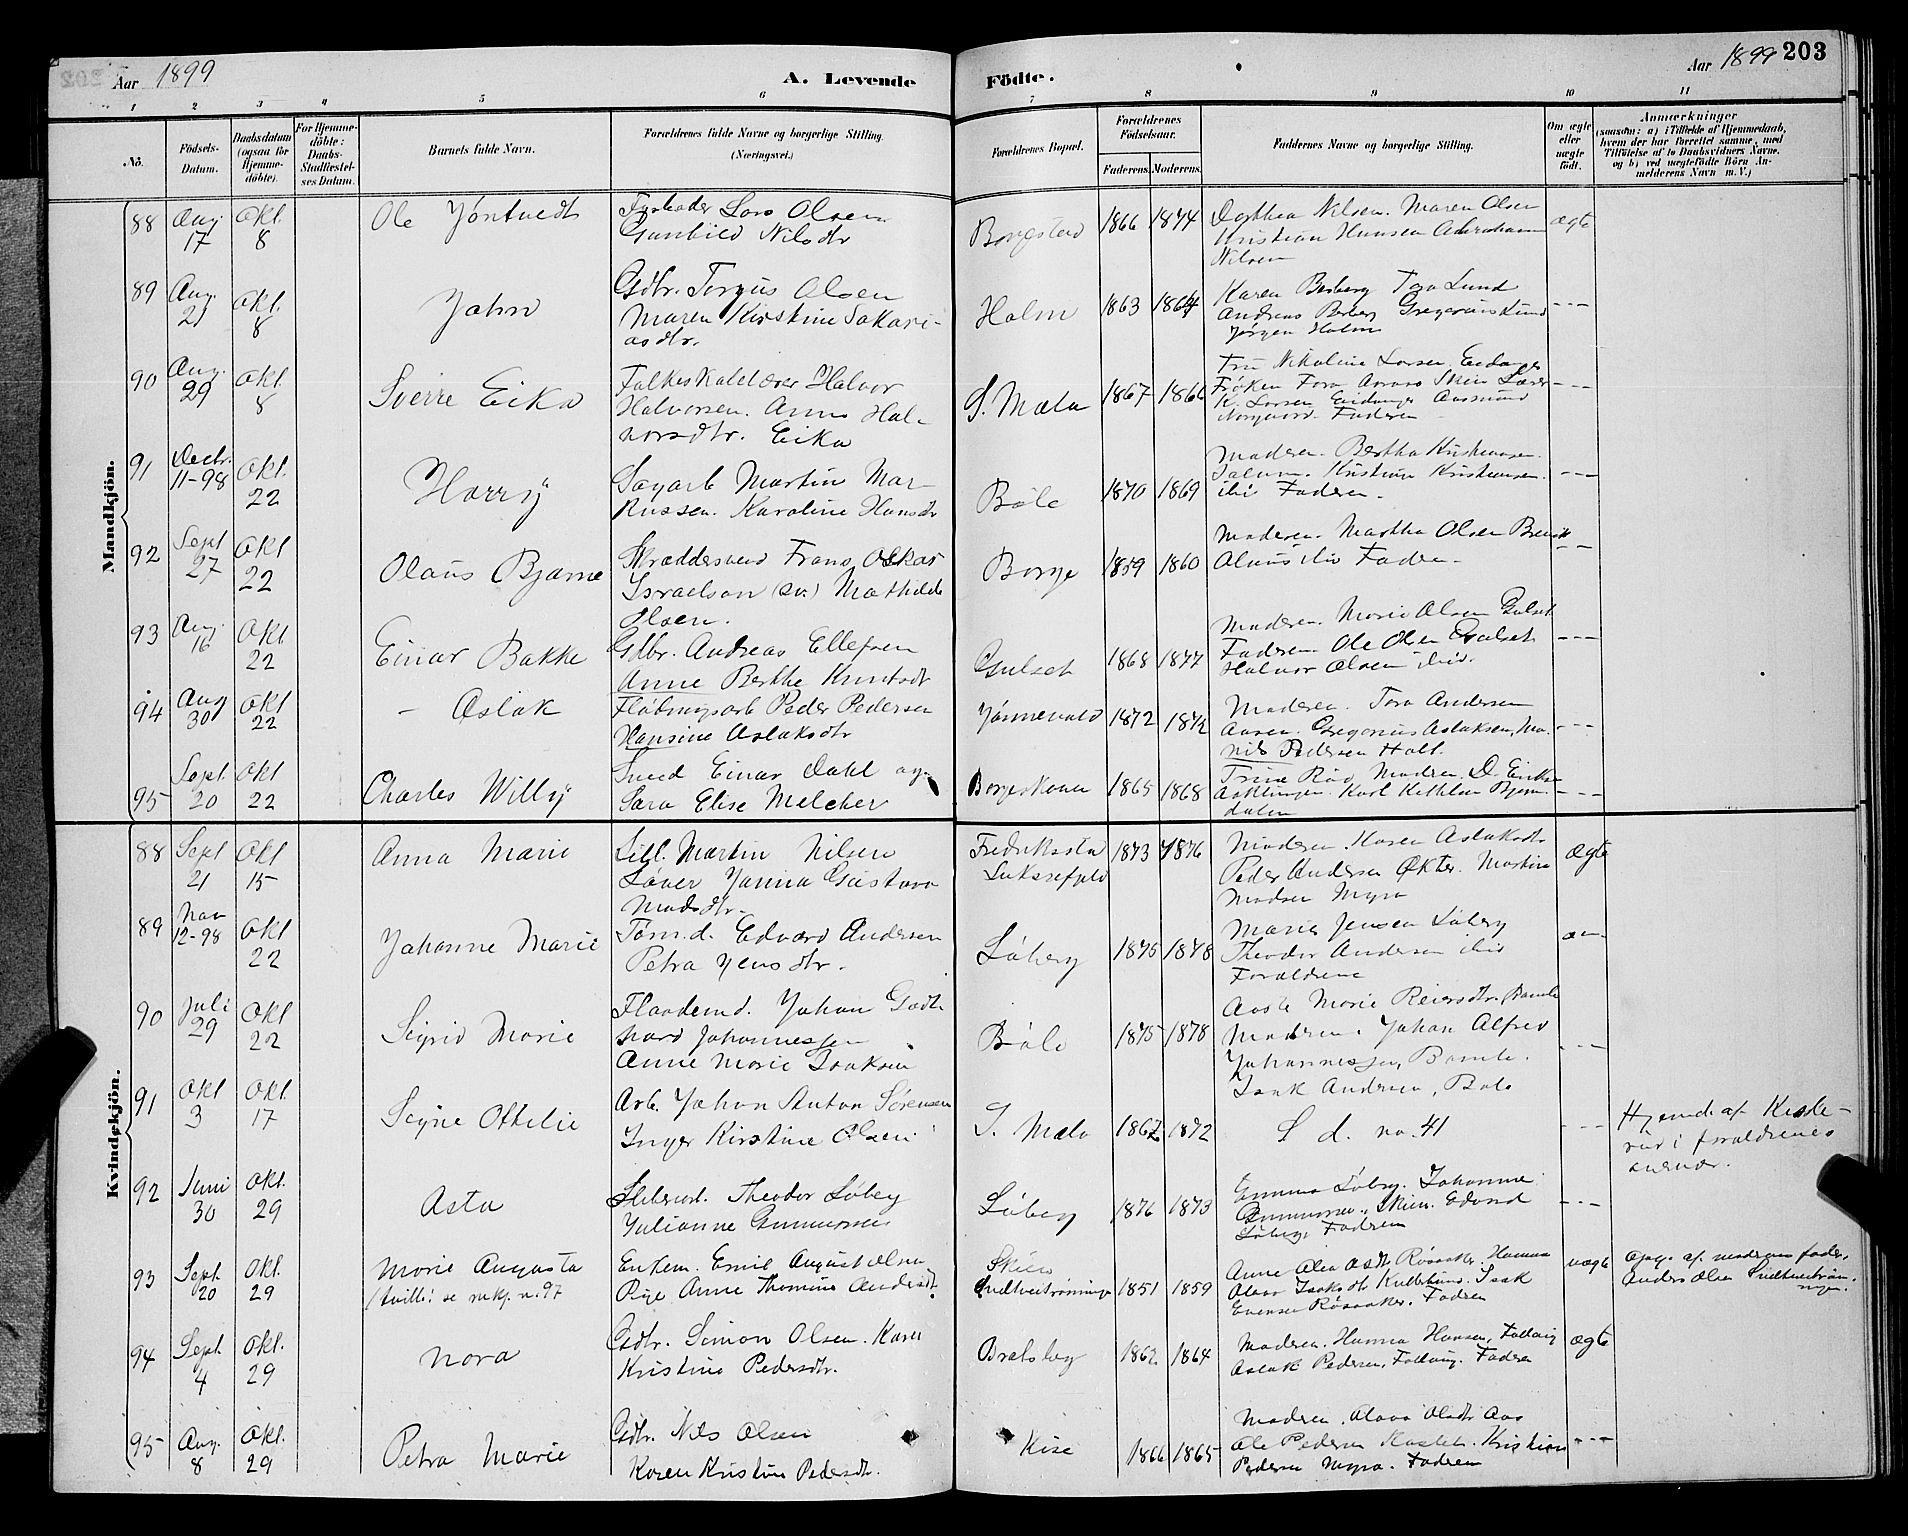 Aar 1899
A. Levende
Födte.
Aar 1899 203
1 2 3 4 5 6 7 8 9 10 11
No.
Födsels-Datum.
Daabsdatum (ogsaa for Hjemmedöbte).
For Hjemmedöbte: Daabs-Stadfæstelses Datum.
Barnets fulde Navn.
Forældrenes fulde Navne og borgerlige Stilling.
(Næringsvei.)
Forældrenes Bopæl.
Forældrenes Födselsaar.
Faderens. Moderens.
Faddernes Navne og borgerlige Stilling.
Om ægte eller uægte födt.
Anmærkninger
(saasom: a) i Tilfælde af Hjemmedaab,
hvem der har forrettet samme, med
Tilföielse af to Daabsvidners Navne,
og b) ved uægtefödte Börn Anmelderens Navn m. V.)
Mandkjön.
88 Aug. 17 Okt. 8
Ole
Lars Olsen
Gunhild Nilsdtr
Borgestad 1866 1874
Dorthea Nilsen. Maren Olsen
Kristian Hansen Abraham
Nilsen
ægte
89 Aug. 21 Okt. 8
John
Gdbr. Torgus Olsen
Maren Kirstine Sakari-
asdtr.
Holm 1863 1864
Karen Berberg Tora Lund
Andreas Berberg Gregorius Lund
Jørgen Holm
---
90 Aug. 29 Okt. 8
Sverre Eika
Halvor
Halvorsen. Anne Hal-
vorsdtr. Eika
S. Mæla 1867 1866
Fru Nikoline Larsen Eidanger
Frøken Tora Skien Lærer
K. Larsen Eidanger Aasmund
Norgaard. Faderen
---
91 Decbr. 11-98 Okt. 22
Harry
Sagarb Martin Mar-
kussen. Karoline Hansdtr
Bøle 1870 1869
Moderen. Bertha Kristiansen
Kristine Kristiansen
ibid Faderen.
---
92 Sept 27 Okt 22
Olaus Bjarne
Skræddersvend Frans Oskar
Israelson (sv.) Mathilde
Olsen.
Borge 1859 1860
Moderen. Martha Olsen
Olaus ibid Faderen.
93 Aug. 16 Okt 22
Einar Bakke
Gdbr. Andreas Ellefsen
Anne Berthe Knutsdtr
Gulset 1868 1877
Moderen. Marie Olsen Gulset
Faderen Ole Olsen Gulset
Halvor Olsen ibid.
---
94 Aug 30 Okt 22
- Aslak
Fløtningsarb Peder Pedersen
Hansine Aslaksdtr
Jønnevald 1872 1872
Moderen. Tora Andersen
Aasen. Gregorius Aslaksen, Ma-
Pedersen Holt.
---
95 Sept. 20 Okt 22
Charles Willy
Smed Einar Dahl og
Sara Elise Melcher
1865 1868
Trine Moderen. D. Eriksen
Karl Kittilsen Bjørn-
dalen
---
Kvindekjön.
88 Sept 21 Okt 15
Anna Marie
Martin Nilsen
Janna Gustava
Madsdtr.
Fredriksstad
Luksefjeld
1873 1876
Moderen. Karen Aslaksdtr
Peder Andersen Økter. Martin
Madsen Myra
Ægte
89 Nov 12-98 Okt 22
Johanne Marie
Tømd. Edvard Andersen
Petra Jensdtr.
Løberg 1875 1878
Maria Jensen Løberg
Theodor Andersen ibid
Forældrene
90 Juli 29 Okt 22
Sigrid Marie
Johan Godt-
hard Johannessen
Anne Marie Isaksen
Bøle 1875 1878
Aaste Marie Reiersdtr. Bamle
Moderen. Johan Alfred
Johannessen, Bamle.
Isak Andersen, Bøle
---
91 Okt 3 Okt. 17
Signe Othilie
Arb. Johan Anton Sørensen
Inger Kirstine Olsen
S. Mæla 1867 1872
S d. no. 41
---
Hjemdt af
i forældrenes
92 Juni 30 Okt. 29
Asta
Theodor Løberg
Julianne Gunnarsen
Løberg 1876 1873
Emma Løberg. Johanne
Gunnarsen, Skien. Edvard
Løberg, Faderen
---
93 Sept. 20 Okt. 29
Marie Augusta
(tvilli: se mkj. n. 97
Enkem. Emil August Olsen
Anne Thomine Andersdtr.
Skien 1851 1859
Anne Olea Røsaaker. Hanna
Isaksdtr. Isak
Evensen Røsaaker. Faderen
uægte
Opg. af moderens fader,
Anders Olsen
94 Sept. 4 Okt. 29
Nora
Gdbr. Simon Olsen. Karen
Kristine Pedersdtr.
Bratsberg 1862 1864
Moderen. Hanna Hansen, Follaug
Aslak Pedersen, Follaug. Faderen
ægte
95 Aug. 8 Okt. 29
Petra Marie
Gdbr. Nils Olsen
Karen Kristine Pedersdtr.
Kise 1866 1865
Moderen. Olava Olsdtr Aas
Ole Pedersen Kristian
Pedersen Myra. Faderen
---